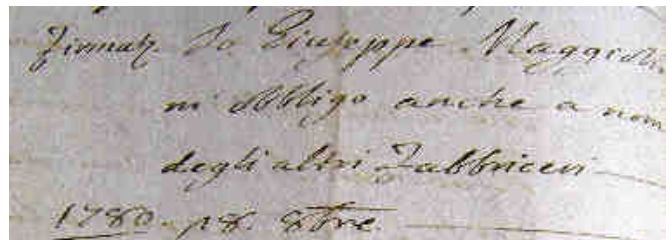 Firmat. Io Giuseppe Maggiolin
m'obbligo anche a nom
degli altri Fabbriceri
1780. 18. 8bre.